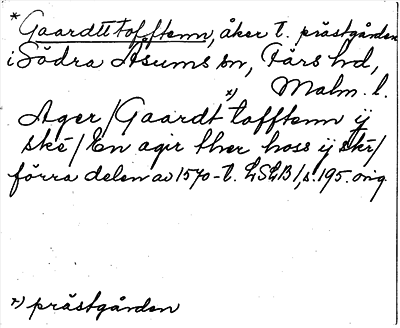 *Gaardtt tofftenn, åker t. prästgården
i Södra Åsums sn, Färs hd,
x) Malm. l.
Ager / Gaardt tofftenn ij
ske / En agir ther hoss ij ske /
förra delen av 1570-t. LSLB /, s. 195. orig.
x) prästgården